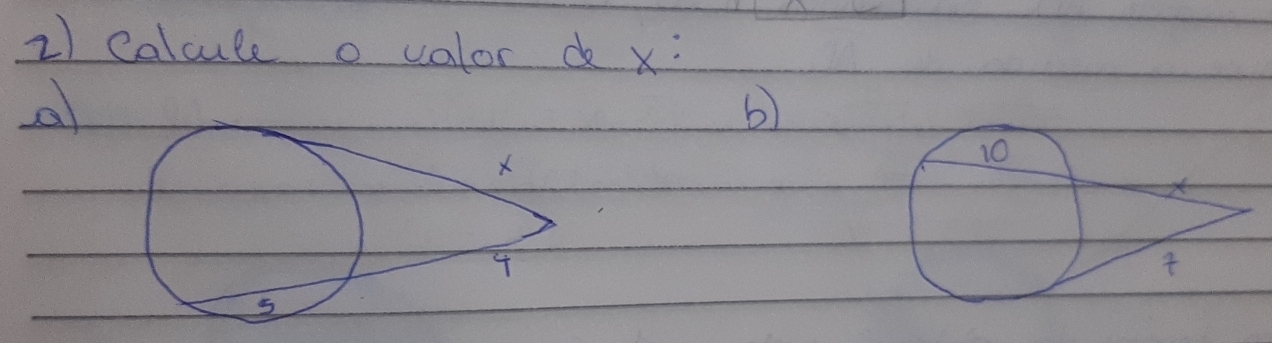 2) Calcule o valor de x:
a) b)
x 10 x
4 7
5